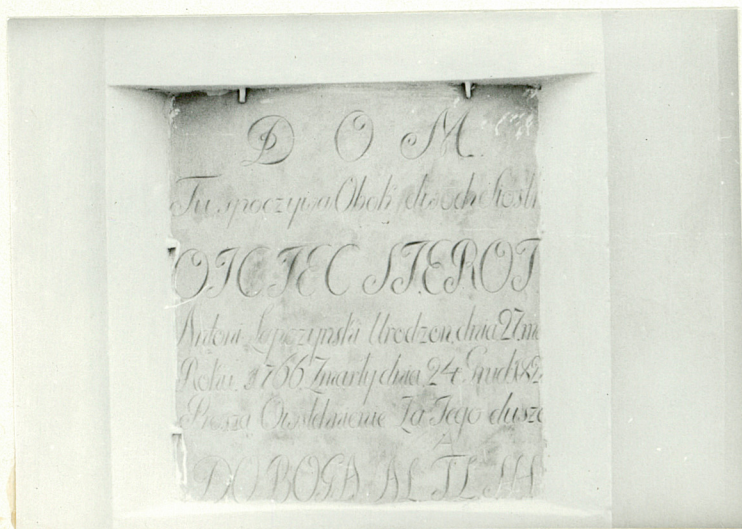 D O M
Tu spoczywa Obok dwoch Siostr
OYCIEC SIEROT
Antoni Łopczynski Urodzon dnia 27 m
Roku 1766 Zmarły dnia 24 Grud
Proszą Owstchnienie Za Jego dusze
DO BOGA